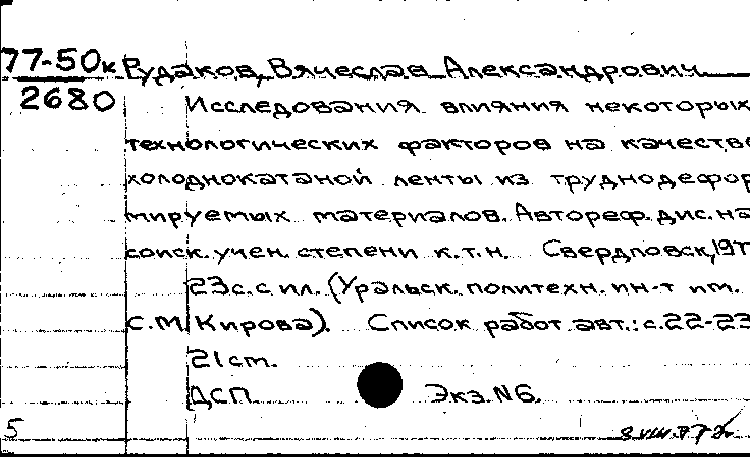 77-50к Рудаков, Вячеслав Александрович
2680 Исследования влияния некоторых
технологических факторов на качество
холоднокатаной ленты из труднодефор
мируемых материалов. Автореф. дис. на
соиск. учен. степени к.т.н. Свердловск, 197
23с. с ил. (Уральск. политехн. ин-т им.
С.М. Кирова). Список работ авт.: с.22-23
21 ст.
ДСП. Экз. №6.
5